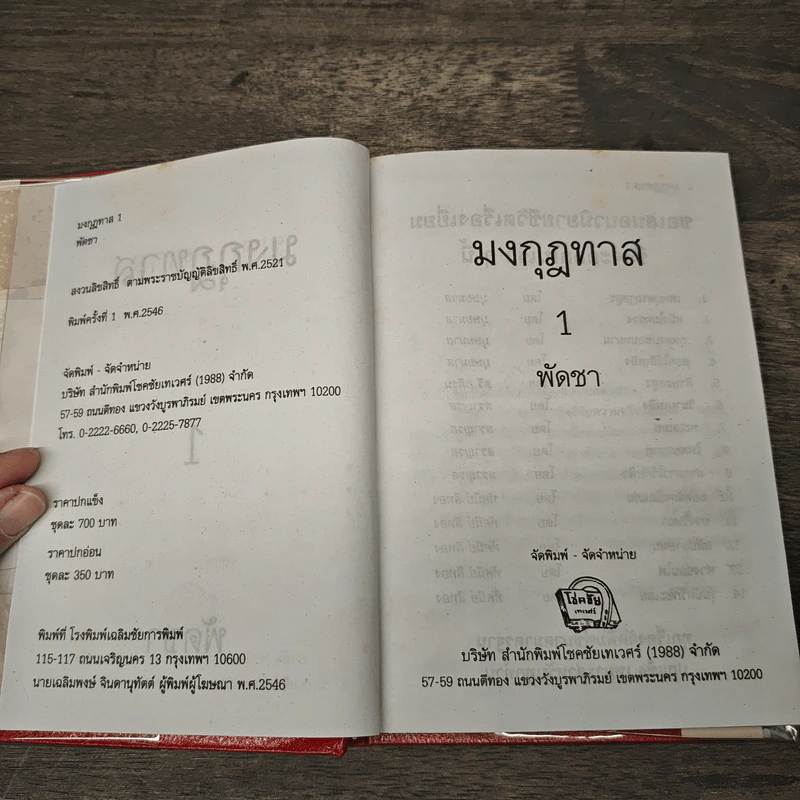 มงกุฎทาส 1
พัดชา
สงวนลิขสิทธิ์ ตามพระราชบัญญัติลิขสิทธิ์ พ.ศ.2521
พิมพ์ครั้งที่ 1 พ.ศ.2546
จัดพิมพ์ - จัดจำหน่าย
บริษัท สำนักพิมพ์โชคชัยเทเวศร์ (1988) จำกัด
57-59 ถนนตีทอง แขวงวังบูรพาภิรมย์ เขตพระนคร กรุงเทพฯ 10200
โทร. 0-2222-6660, 0-2225-7877
ราคาปกแข็ง
ชุดละ 700 บาท
ราคาปกอ่อน
ชุดละ 350 บาท
พิมพ์ที่ โรงพิมพ์เฉลิมชัยการพิมพ์
115-117 ถนนเจริญนคร 13 กรุงเทพฯ 10600
นายเฉลิมพงษ์ จินดานุทัตต์ ผู้พิมพ์ผู้โฆษณา พ.ศ.2546
มงกุฎทาส
1
พัดชา
จัดพิมพ์ - จัดจำหน่าย
โชคชัย
เทเวศร์
บริษัท สำนักพิมพ์โชคชัยเทเวศร์ (1988) จำกัด
57-59 ถนนตีทอง แขวงวังบูรพาภิรมย์ เขตพระนคร กรุงเทพฯ 10200